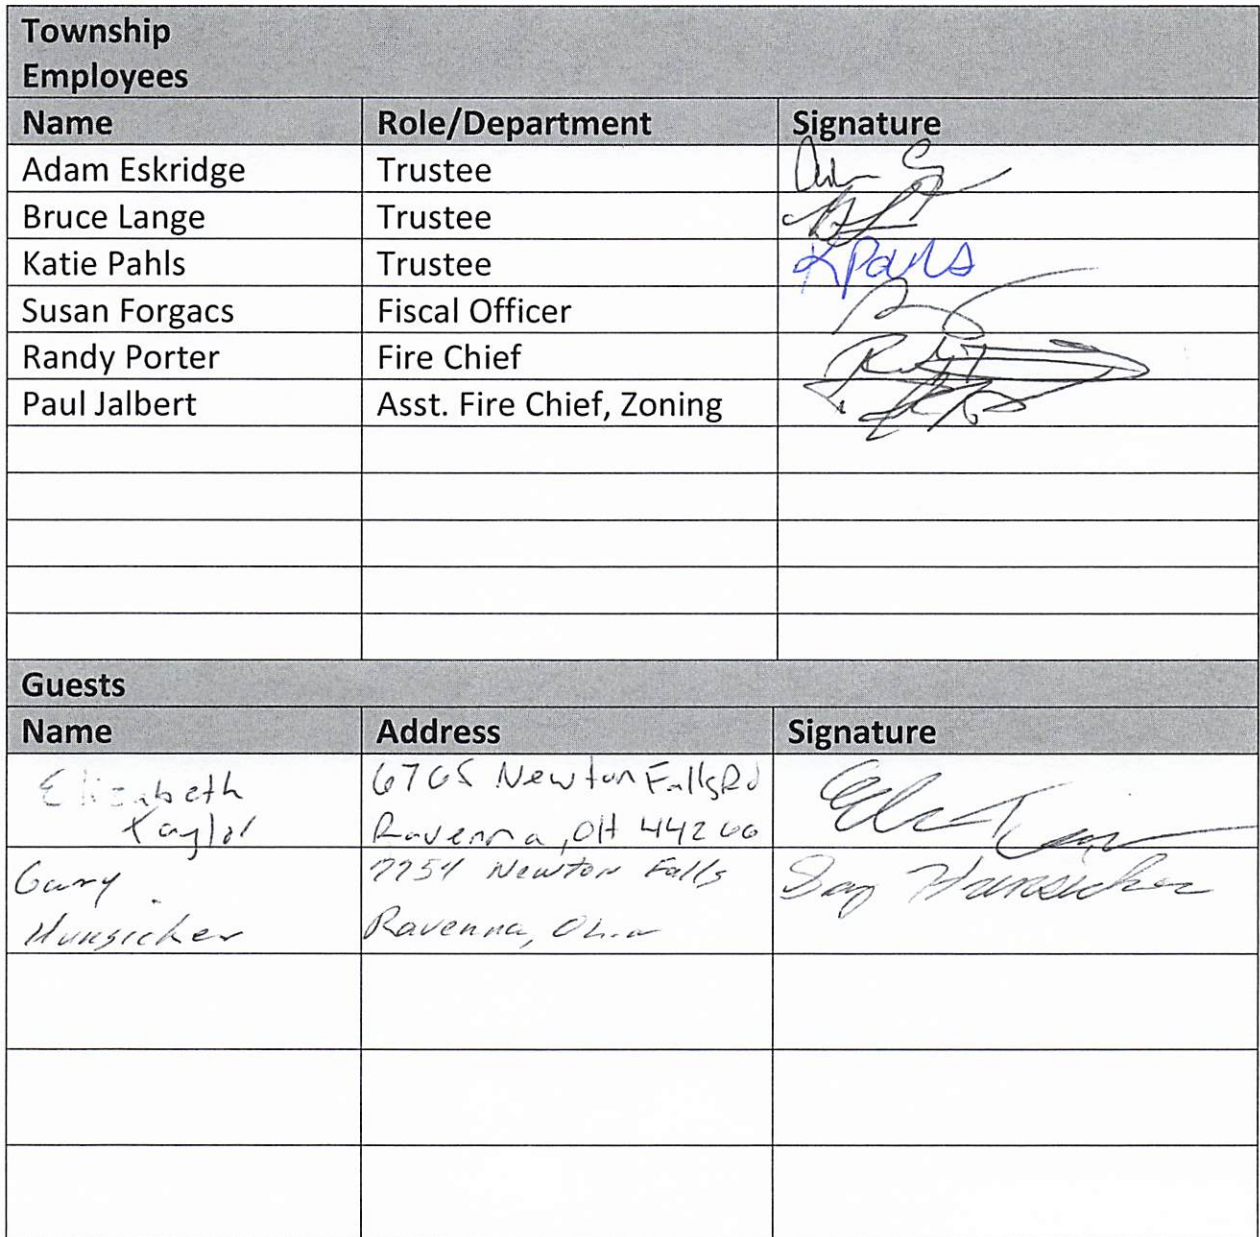 Township
Employees
Name Role/Department Signature
Adam Eskridge Trustee
Bruce Lange Trustee
Katie Pahls Trustee K Pahls
Susan Forgacs Fiscal Officer
Randy Porter Fire Chief
Paul Jalbert Asst. Fire Chief, Zoning
Guests
Name Address Signature
Elizabeth 6765 Newton Falls Rd
Taylor Ravenna, OH 44266
Gary 7754 Newton Falls Gary Hunsicker
Hunsicker Ravenna, Ohio